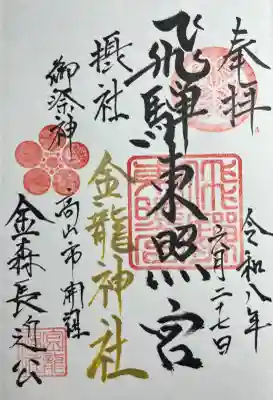 奉拝
飛騨東照宮
令和八年
六月二十七日
摂社
金龍神社
御祭神
高山市開祖
金森長近公